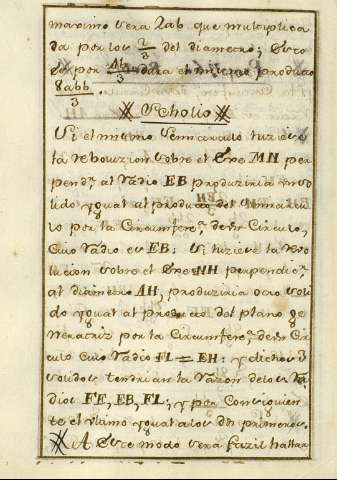 maximo sera 2ab que multiplica
da por los 2/3 del diametro; esto
es por 4b/3 dara el mismo producto
8abb/3.
Scholio
Si el mismo semicirculo tuvies
ela revoluzion sobre el Exe MH per
pend.r al radio EB produziria un so
lido ygual al producto del semicircu
lo por la Circumfer.a de un Circulo,
cuio radio es EB: si tuviese la revo
lucion sobre el Exe NH perpendic.r
al diametro AH, produziria otro soli
do ygual al producto del plano ge
neratriz por la Circumfer.a de un Cir
culo cuio radio FL=EH: y dichos 3
solidos tendrian la razon de los ra
dios FE, EB, FL; y por Consiguien
te el ultimo ygual a los dos primeros.
A este modo sera facil hallar